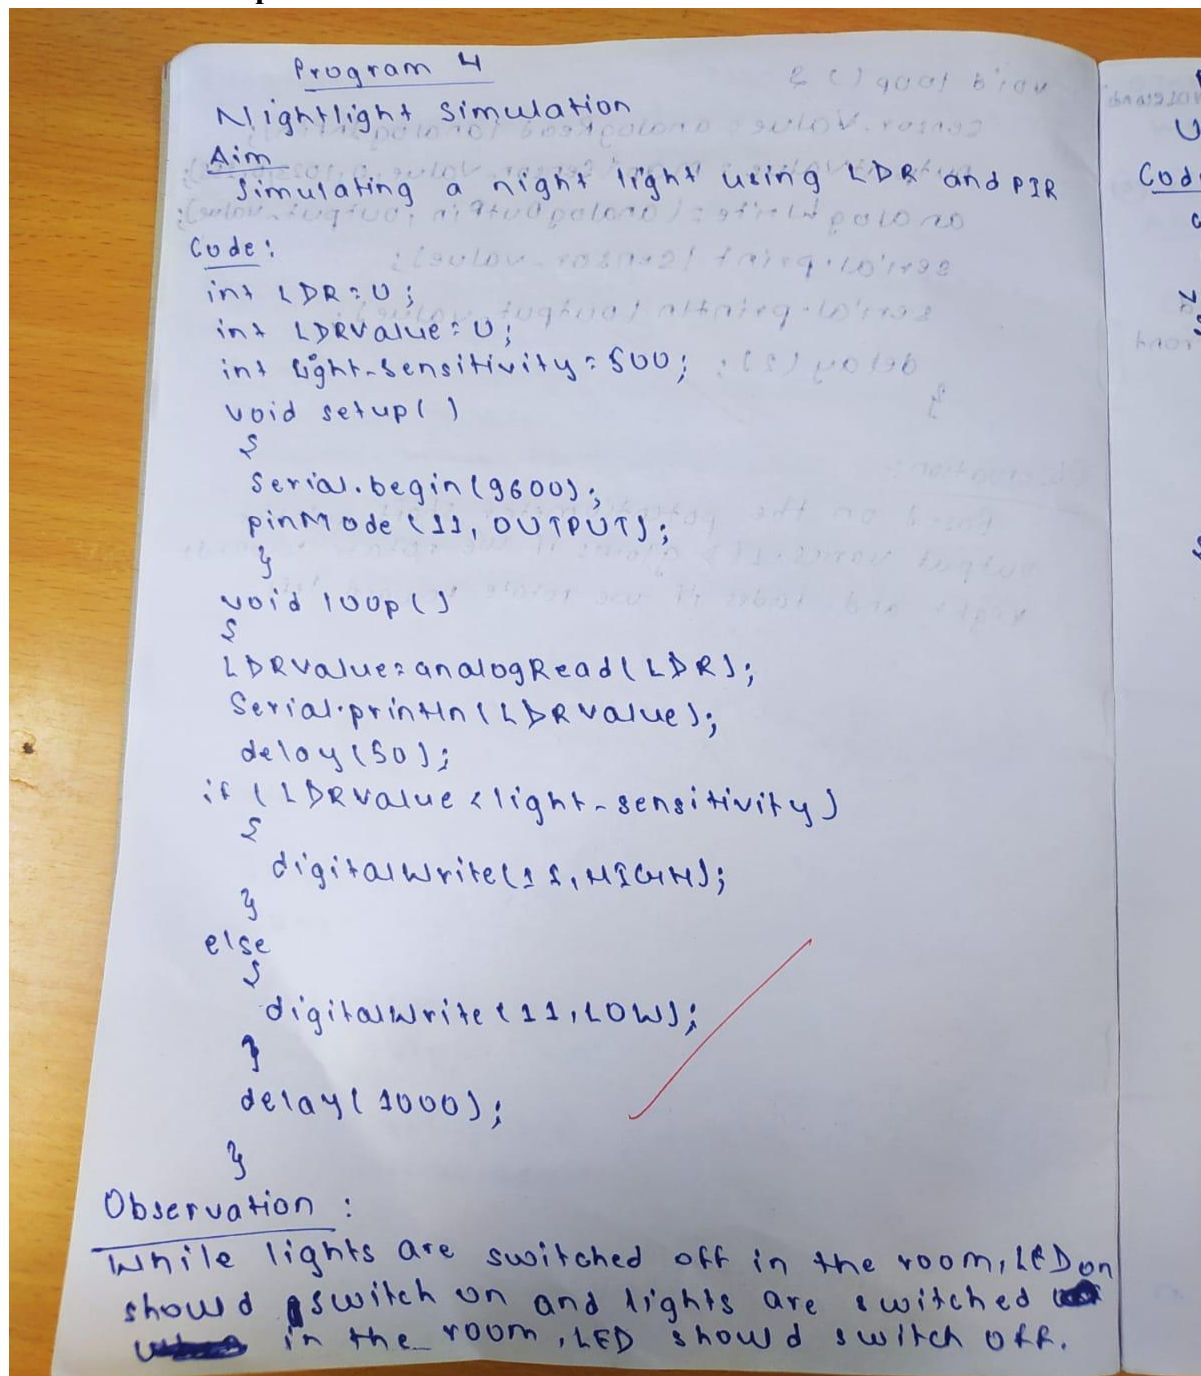 Program 4
Nightlight simulation
Aim
Simulating a night light using LDR and PIR
Code:
int LDR=0;
int LDRValue=0;
int light-sensitivity=500;
void setup()
{
Serial.begin(9600);
pinMode(11, OUTPUT);
}
void loop()
{
LDRValue=analogRead(LDR);
Serial.println(LDRValue);
delay(50);
if (LDRValue<light-sensitivity)
{
digitalWrite(11,HIGH);
}
else
{
digitalWrite(11,LOW);
}
delay(1000);
}
Observation :
While lights are switched off in the room, LED on
should switch on and lights are switched
in the room, LED should switch off.
Code